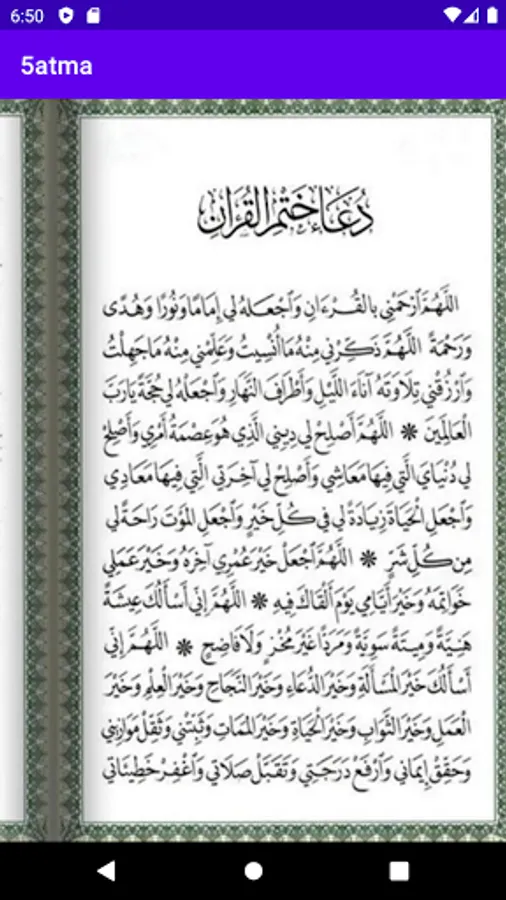 6:50
5atma
دُعَاءُ خَتْمِ القُرْآنِ
اللَّهُمَّ ٱرْحَمْنِي بِالقُرْءَانِ وَٱجْعَلهُ لِي إِمَامًا وَنُورًا وَهُدًى
وَرَحْمَةً اللَّهُمَّ ذَكِّرْنِي مِنْهُ مَا نُسِّيتُ وَعَلِّمْنِي مِنْهُ مَا جَهِلْتُ
وَٱرْزُقْنِي تِلَاوَتَهُ آنَاءَ اللَّيْلِ وَأَطْرَافَ النَّهَارِ وَٱجْعَلْهُ لِي حُجَّةً يَارَبَّ
العَالَمِينَ ❋ اللَّهُمَّ أَصْلِحْ لِي دِينِي الَّذِي هُوَ عِصْمَةُ أَمْرِي وَأَصْلِحْ
لِي دُنْيَايَ الَّتِي فِيهَا مَعَاشِي وَأَصْلِحْ لِي آخِرَتِي الَّتِي فِيهَا مَعَادِي
وَٱجْعَلِ الحَيَاةَ زِيَادَةً لِي فِي كُلِّ خَيْرٍ وَٱجْعَلِ المَوْتَ رَاحَةً لِي
مِن كُلِّ شَرٍّ ❋ اللَّهُمَّ ٱجْعَلْ خَيْرَ عُمْرِي آخِرَهُ وَخَيْرَ عَمَلِي
خَوَاتِمَهُ وَخَيْرَ أَيَّامِي يَوْمَ أَلْقَاكَ فِيهِ ❋ اللَّهُمَّ إِنِّي أَسْأَلُكَ عِيشَةً
هَنِيَّةً وَمِيتَةً سَوِيَّةً وَمَرَدًّا غَيْرَ مُخْزٍ وَلَا فَاضِحٍ ❋ اللَّهُمَّ إِنِّي
أَسْأَلُكَ خَيْرَ المَسْأَلَةِ وَخَيْرَ الدُّعَاءِ وَخَيْرَ النَّجَاحِ وَخَيْرَ العِلْمِ وَخَيْرَ
العَمَلِ وَخَيْرَ الثَّوَابِ وَخَيْرَ الحَيَاةِ وَخَيْرَ المَمَاتِ وَثَبِّتْنِي وَثَقِّلْ مَوَازِينِي
وَحَقِّقْ إِيمَانِي وَٱرْفَعْ دَرَجَتِي وَتَقَبَّلْ صَلَاتِي وَٱغْفِرْ خَطِيئَاتِي